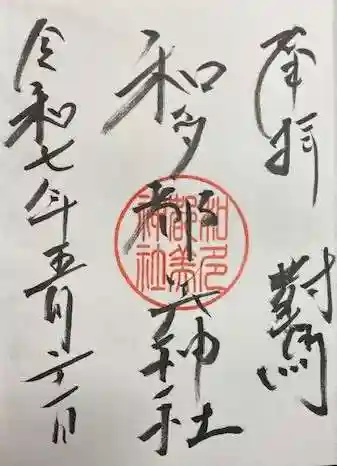 奉拝 對馬
和多都美神社
令和七年五月二十一日
和多都美神社